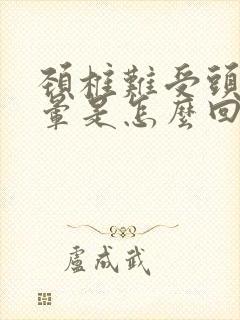 頸椎難受頭
暈是怎麼回
盧成武